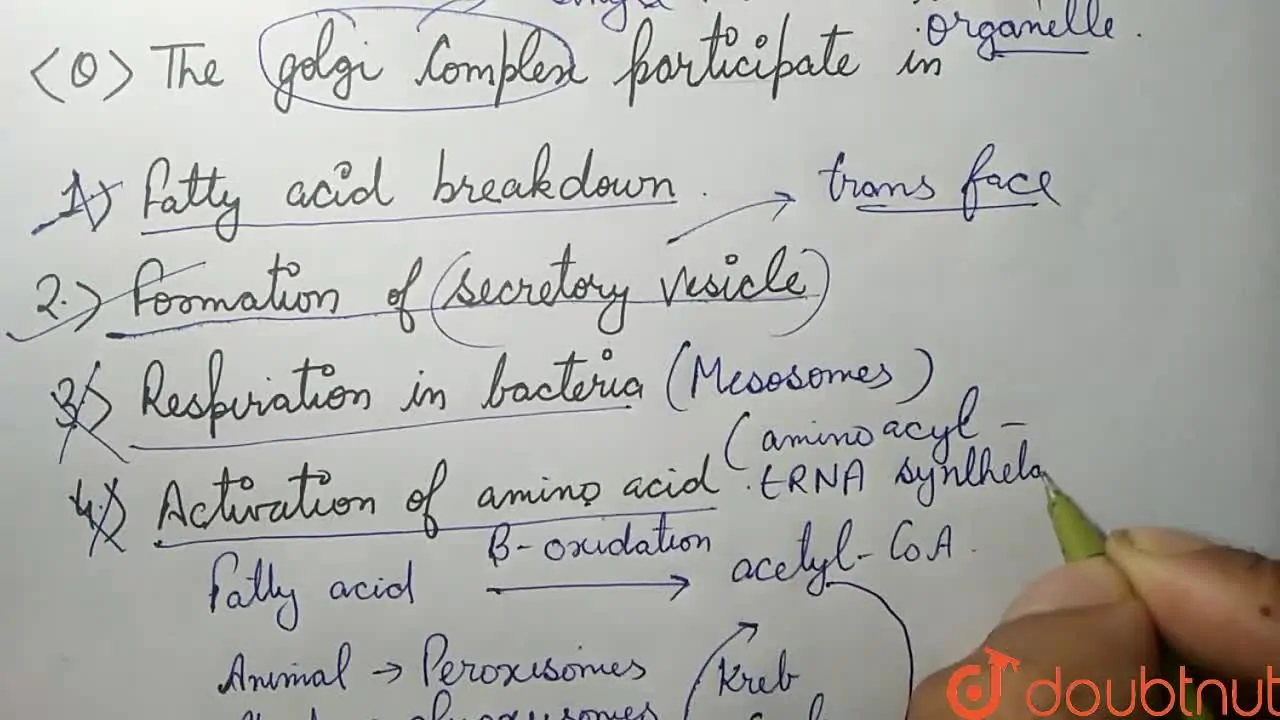 organelle.
<Q> The golgi Complex participate in
1) Fatty acid breakdown.
trans face
2.) Formation of (secretory vesicle)
3) Respiration in bacteria (Mesosomes)
(amino acyl -
4.) Activation of amino acid tRNA syntheta
Fatty acid β-oxidation acetyl-CoA.
Animal → Peroxisomes
Kreb
doubtnut